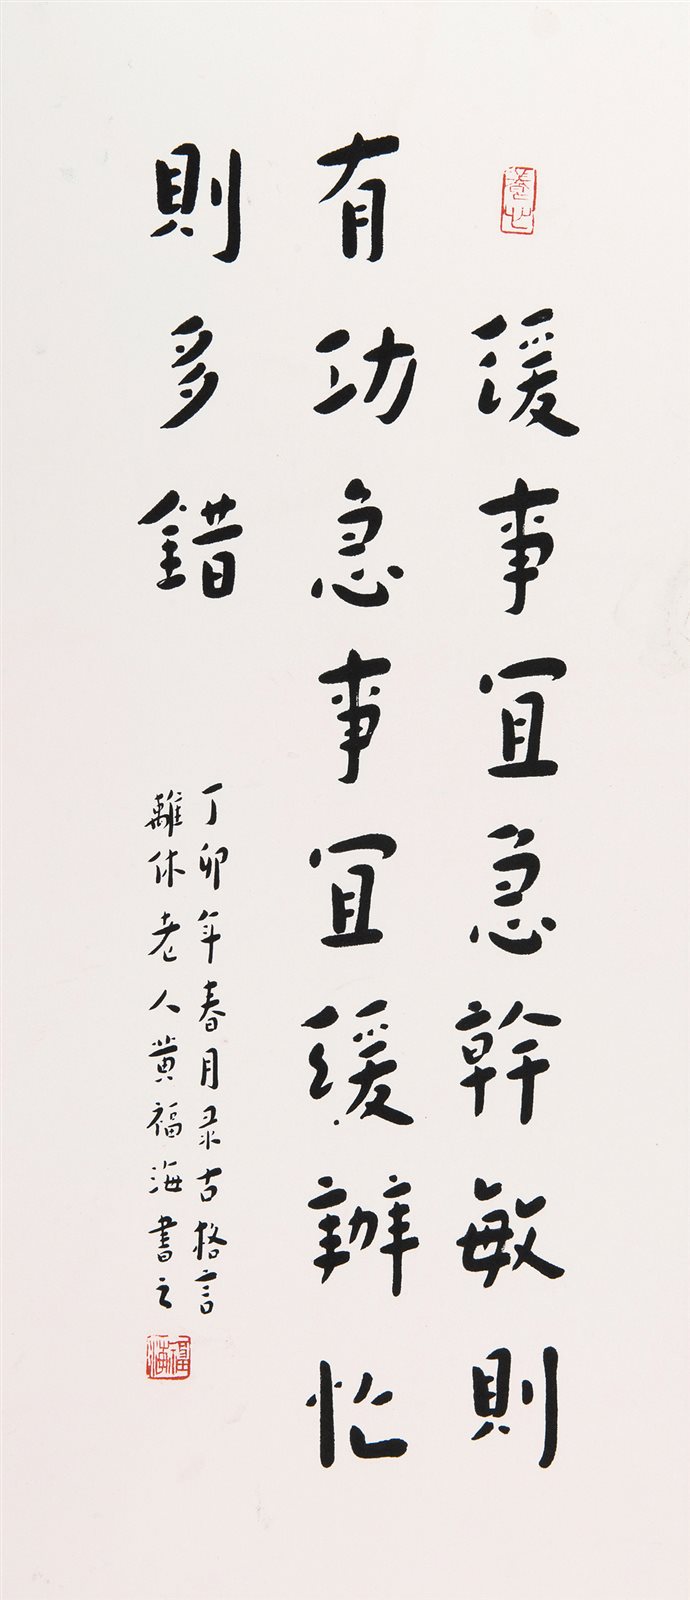 緩事宜急幹敏則
有功急事宜緩辦忙
則多錯
丁卯年春月录古格言
離休老人黄福海書之
福海